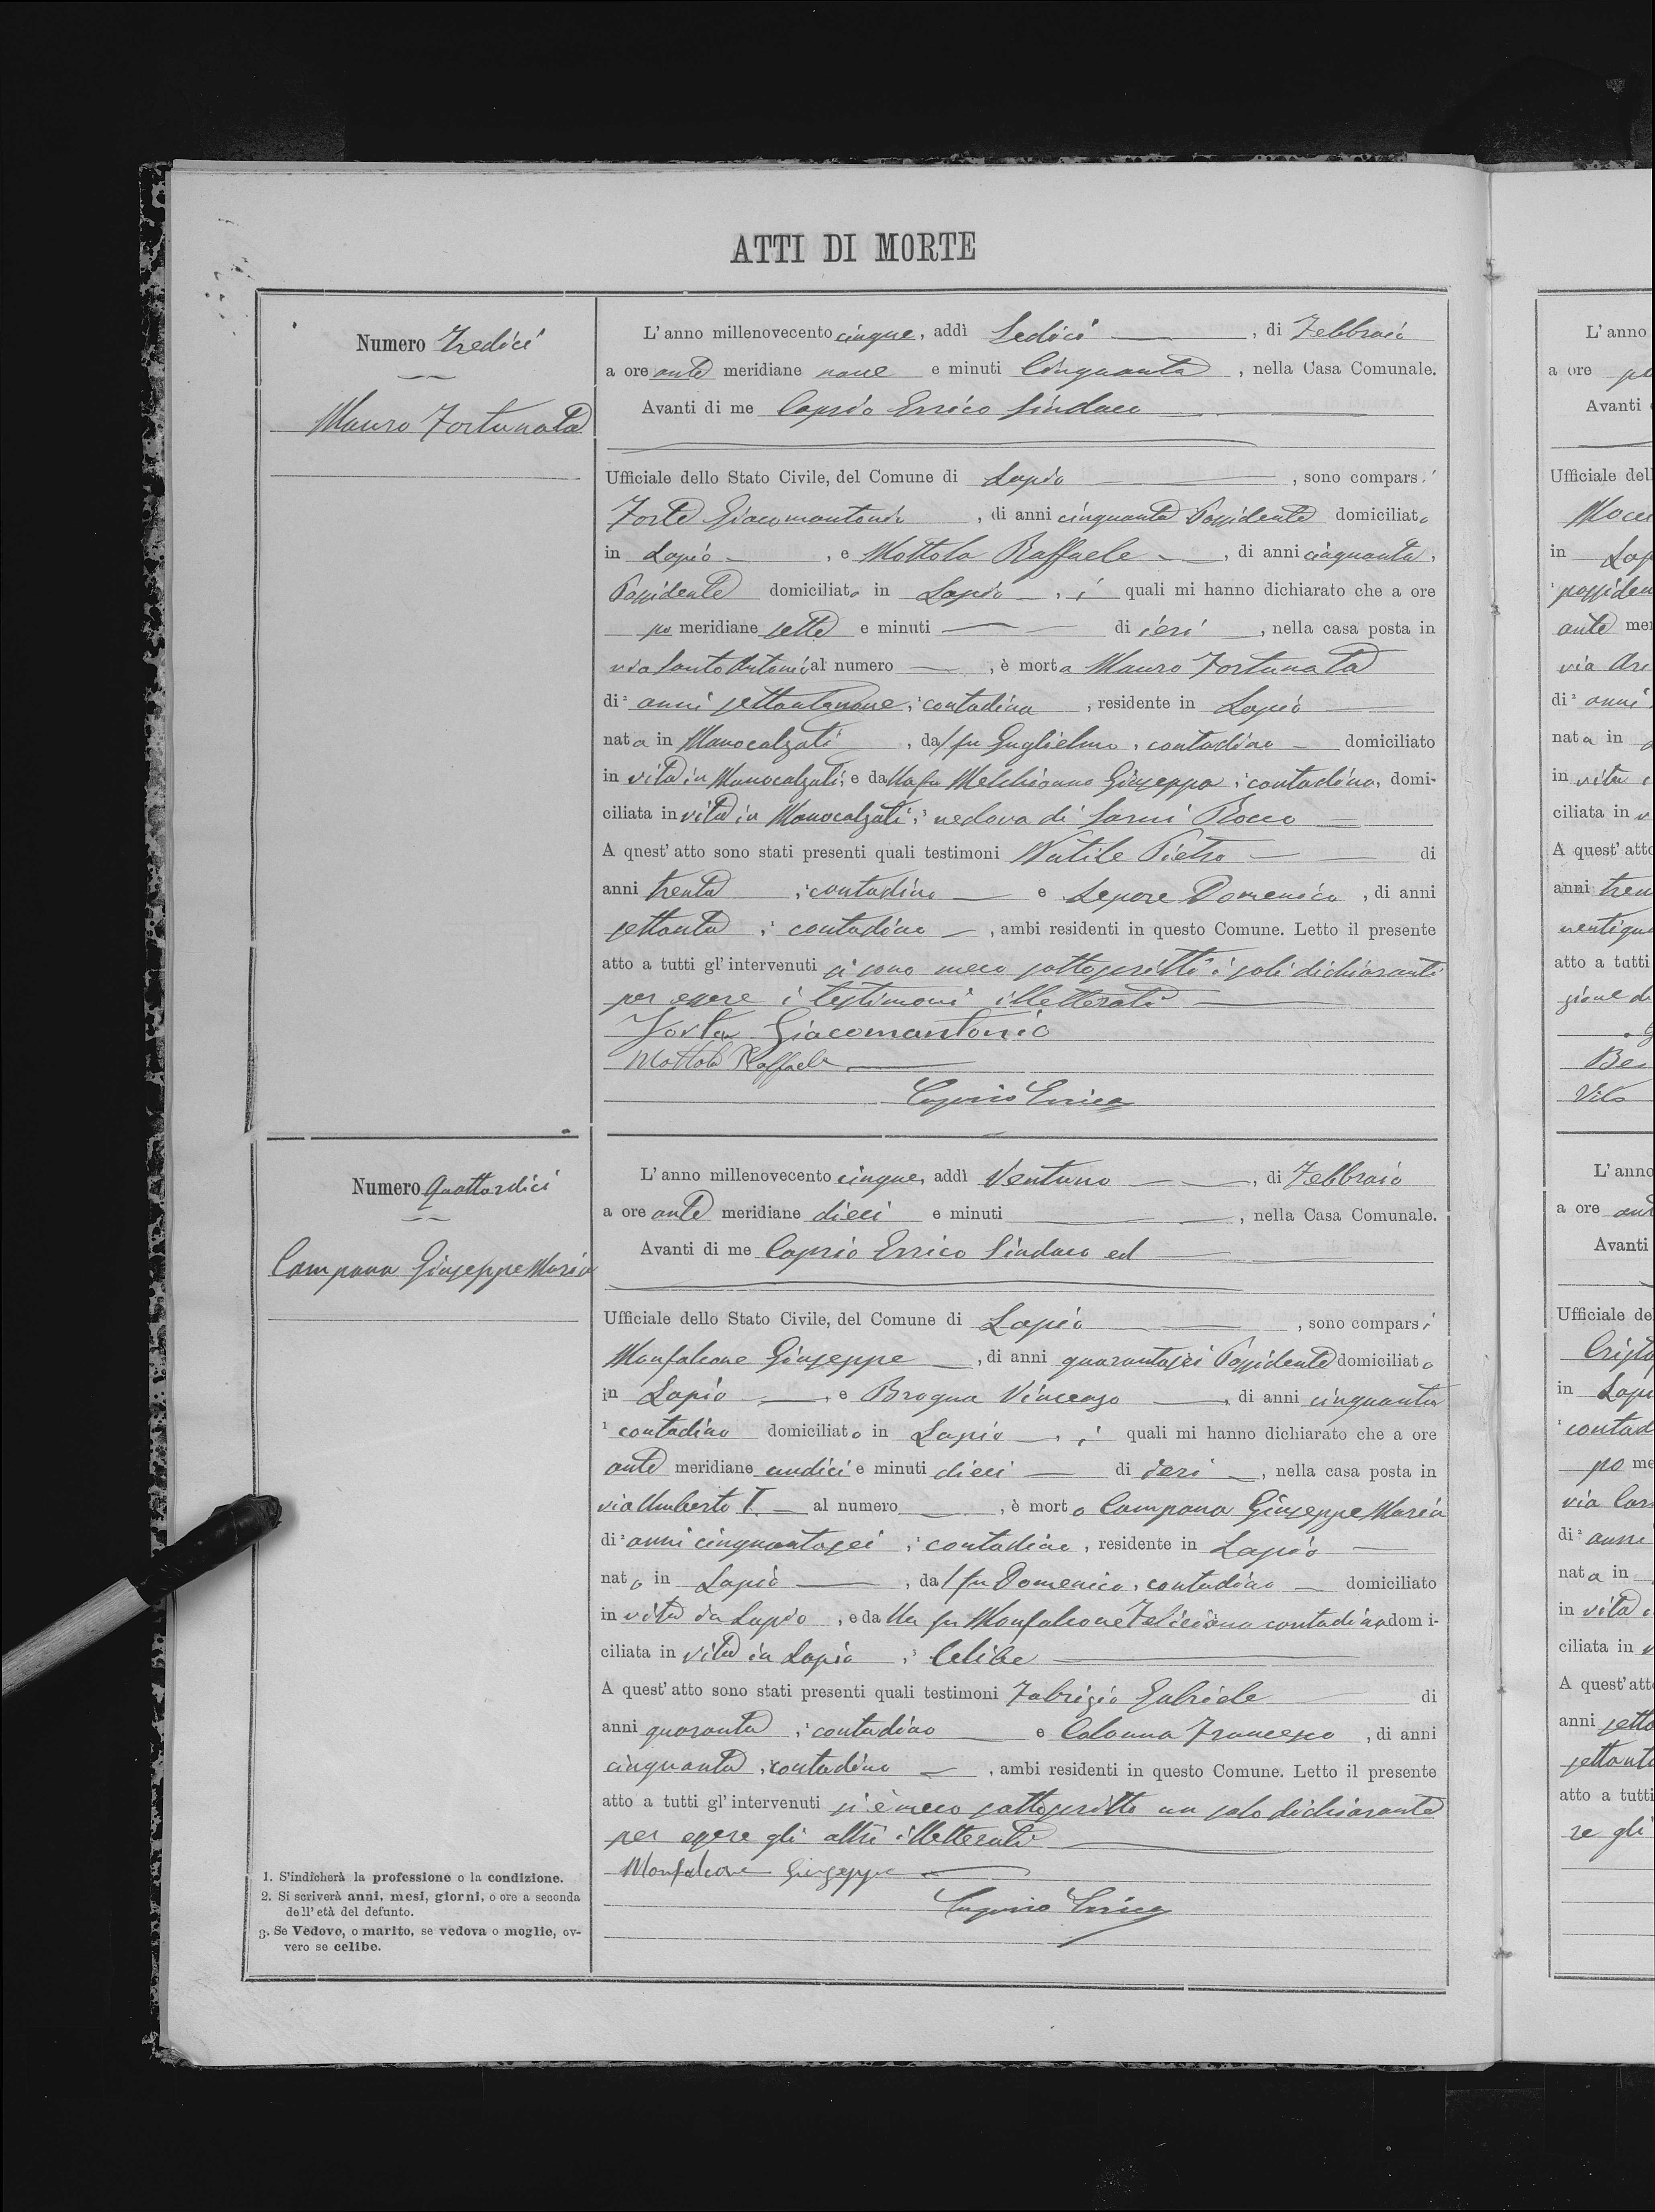 ATTI DI MORTE
Numero Tredici
Mauro Fortunata
L'anno millenovecento cinque, addì Sedici, di Febbraio
a ore ante meridiane nove e minuti Cinquanta, nella Casa Comunale.
Avanti di me Caprio Errico Sindaco
Ufficiale dello Stato Civile, del Comune di Lapio, sono comparsi
Forte Giacomantonio, di anni cinquanta Possidente domiciliato
in Lapio, e Mottola Raffaele, di anni cinquanta,
Possidente domiciliato in Lapio, i quali mi hanno dichiarato che a ore
po meridiane sette e minuti — di ieri, nella casa posta in
via Santo Antonio al numero —, è morta Mauro Fortunata
di ² anni settantanove, ¹ contadina, residente in Lapio
nata in Manocalzati, dal fu Guglielmo, contadino domiciliato
in vita in Manocalzati, e dalla fu Melchionna Giuseppa, contadina, domi-
ciliata in vita in Manocalzati, ³ vedova di Sarni Rocco
A qnest' atto sono stati presenti quali testimoni Natile Pietro di
anni trenta, ¹ contadino e Lepore Domenico, di anni
settanta, ¹ contadino, ambi residenti in questo Comune. Letto il presente
atto a tutti gl' intervenuti si sono meco sottoscritti i soli dichiaranti
per essere i testimoni illetterati
Forte Giacomantonio
Mottola Raffaele
Caprio Errico
Numero Quattordici
Campana Giuseppe Maria
L'anno millenovecento cinque, addì Ventuno, di Febbraio
a ore ante meridiane dieci e minuti —, nella Casa Comunale.
Avanti di me Caprio Errico Sindaco ed
Ufficiale dello Stato Civile, del Comune di Lapio, sono comparsi
Monfalcone Giuseppe, di anni quarantasei Possidente domiciliato
in Lapio, e Brogna Vincenzo, di anni cinquanta
¹ contadino domiciliato in Lapio, i quali mi hanno dichiarato che a ore
ante meridiane undici e minuti dieci di ieri, nella casa posta in
via Umberto I. al numero —, è morto Campana Giuseppe Maria
di ² anni cinquantasei, ¹ contadino, residente in Lapio
nato in Lapio, dal fu Domenico, contadino domiciliato
in vita in Lapio, e dalla fu Monfalcone Feliciana contadina dom i-
ciliata in vita in Lapio, ³ Celibe
A quest' atto sono stati presenti quali testimoni Fabrizio Gabriele di
anni quaranta, ¹ contadino e Colonna Francesco, di anni
cinquanta, contadino, ambi residenti in questo Comune. Letto il presente
atto a tutti gl' intervenuti si è meco sottoscritto un solo dichiarante
per essere gli altri illetterati
Monfalcone Giuseppe
Caprio Errico
1. S'indicherà la professione o la condizione.
2. Si scriverà anni, mesi, giorni, o ore a seconda
dell' età del defunto.
3. Se Vedovo, o marito, se vedova o moglie, ov-
vero se celibe.
L' anno
a ore
Avanti
Ufficiale dell
in Lap
possiden
ante mer
via
di ² anni
nata in
in vita
ciliata in
A quest' atto
anni tren
atto a tutti
Vito
L' anno
a ore
Avanti
Ufficiale de
in Lapi
¹ contad
po me
via
di ² anni
nata in
in vita
ciliata in
A quest' att
anni setta
settanta
atto a tutti
re gli